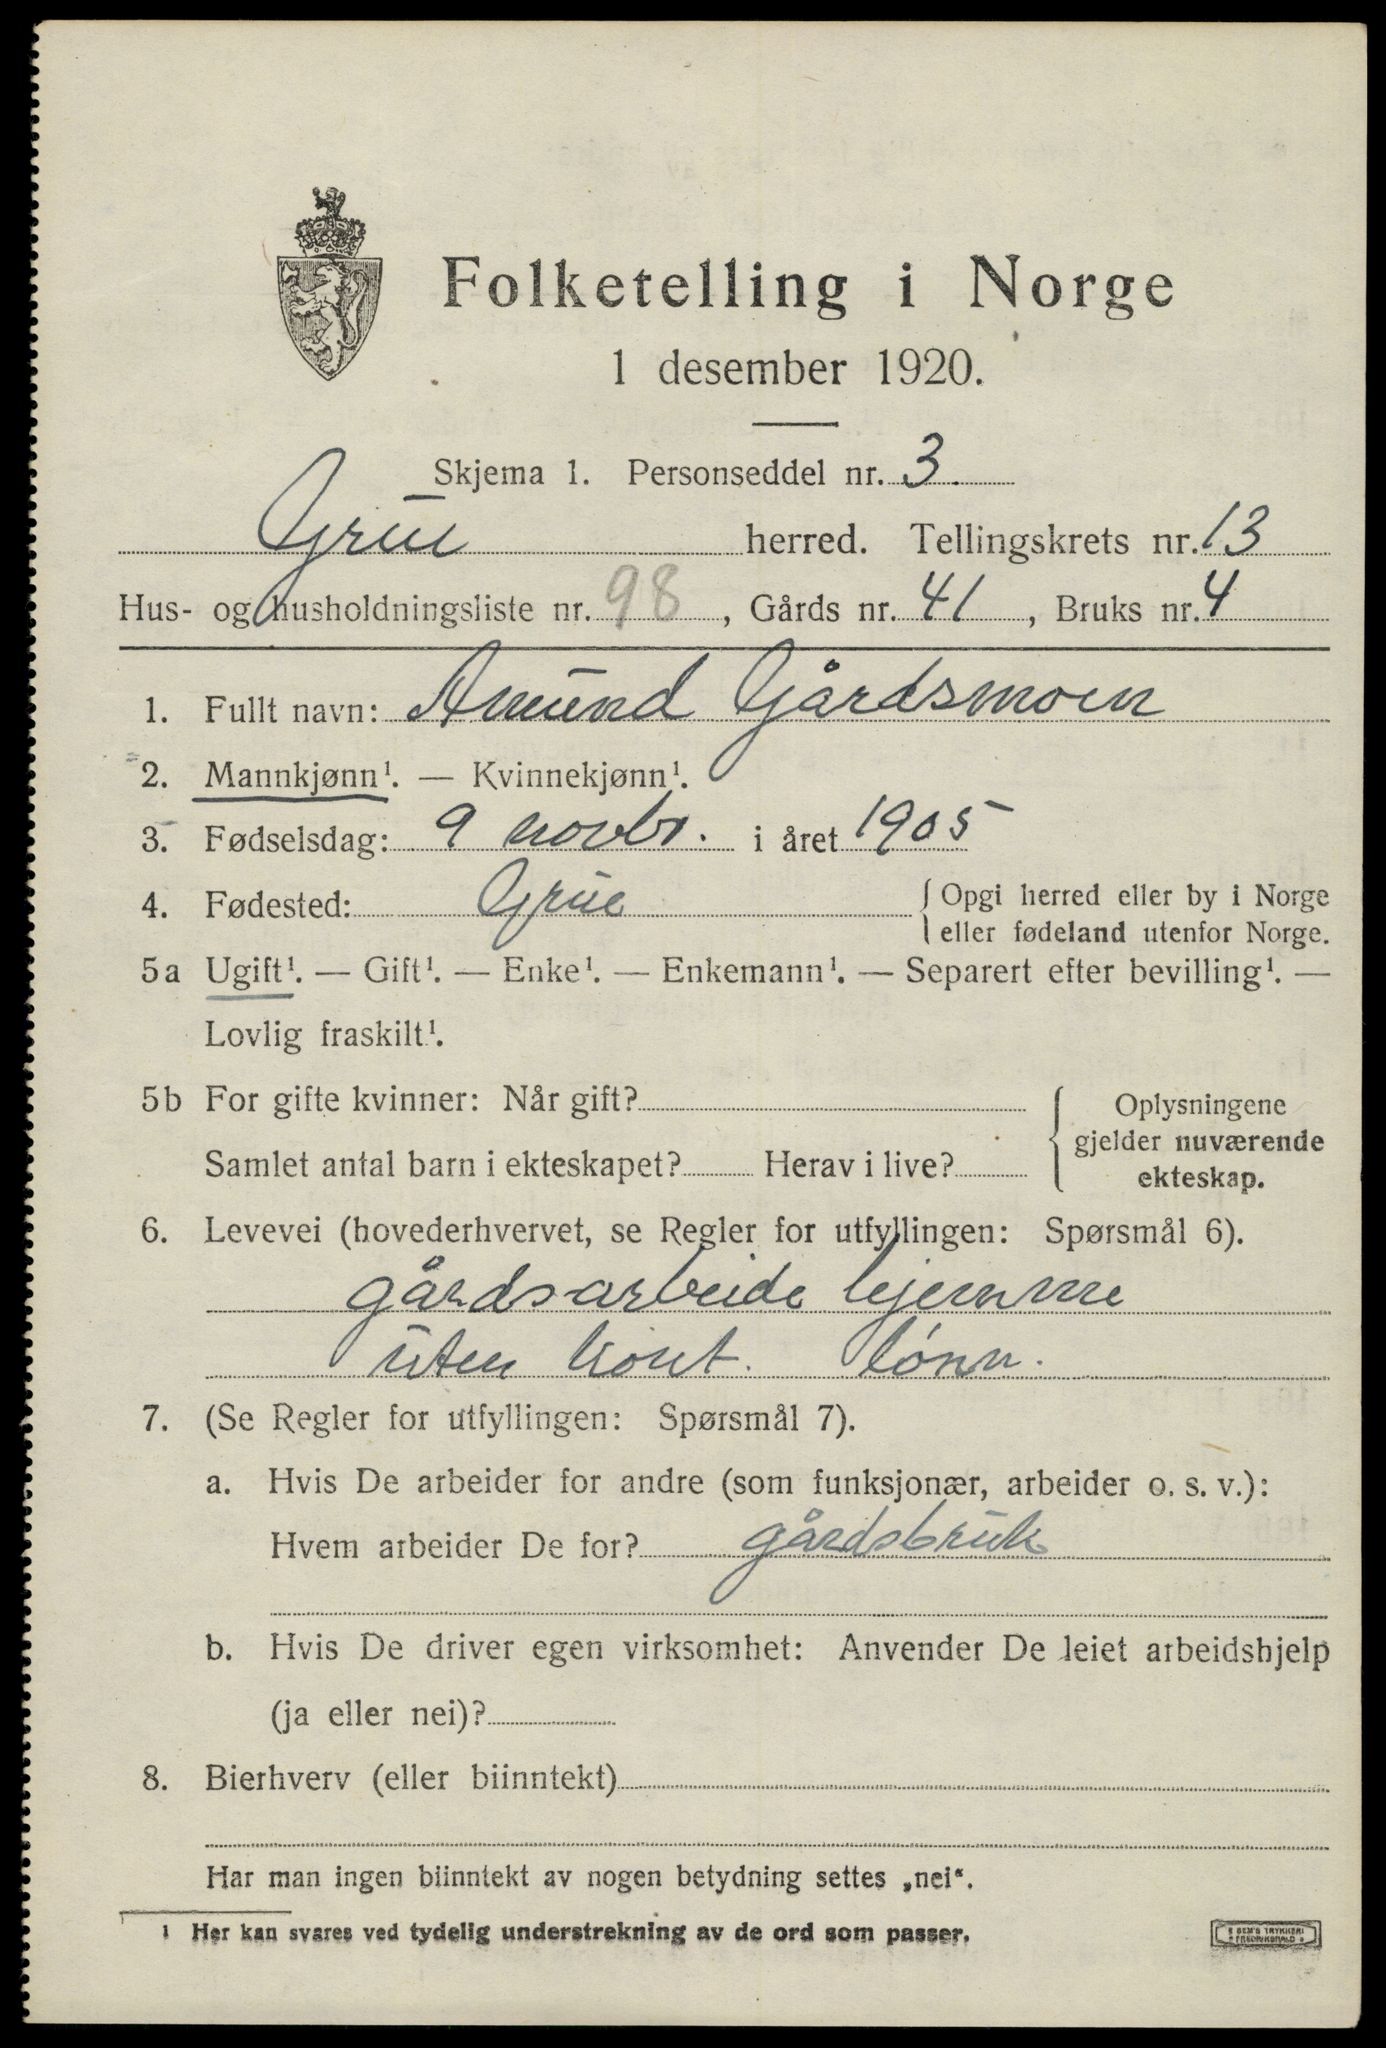 Folketelling i Norge
1 desember 1920.
Skjema 1. Personseddel nr. 3.
Grue herred. Tellingskrets nr. 13
Hus- og husholdningsliste nr. 98, Gårds nr. 41, Bruks nr. 4
1. Fullt navn: Amund Gårdsmoen
2. Mannkjønn¹. — Kvinnekjønn¹.
3. Fødselsdag: 9 novbr. i året 1905
4. Fødested: Grue { Opgi herred eller by i Norge
eller fødeland utenfor Norge.
5a Ugift¹. — Gift¹. — Enke¹. — Enkemann¹. — Separert efter bevilling¹. —
Lovlig fraskilt¹.
5b For gifte kvinner: Når gift? { Oplysningene
gjelder nuværende
ekteskap.
Samlet antal barn i ekteskapet? Herav i live?
6. Levevei (hovederhvervet, se Regler for utfyllingen: Spørsmål 6).
gårdsarbeide hjemme
uten kont. lønn.
7. (Se Regler for utfyllingen: Spørsmål 7).
a. Hvis De arbeider for andre (som funksjonær, arbeider o. s. v.):
Hvem arbeider De for? gårdsbruk
b. Hvis De driver egen virksomhet: Anvender De leiet arbeidshjelp
(ja eller nei)?
8. Bierhverv (eller biinntekt)
Har man ingen biinntekt av nogen betydning settes „nei“.
1 Her kan svares ved tydelig understrekning av de ord som passer.
SEM'S TRYKKERI
FREDRIKSHALD